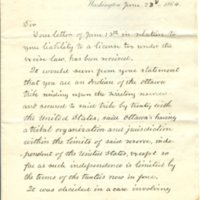 Washington June 23ᵈ 1864
Sir
Your letter of June 13th in relation to
your liability to a license tax under the
new law, has been received.
It would seem from your statement
that you are an Indian of the Ottawa
Tribe residing upon the territory reserved
and secured to said tribe by treaty with
the United States, said Ottawas having
a tribal organization and jurisdiction
within the limits of said reserve, inde-
pendent of the United States, except so
far as such independence is limited by
the terms of the treaties now in force.
It was decided in a case involving